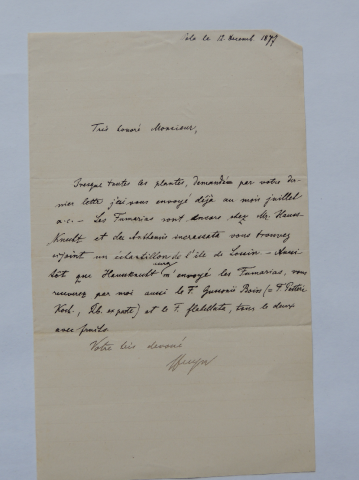 le 12. Novemb. 1877
Très honoré Monsieur,
Presque toutes les plantes, demandées par votre der
nier lettre j'ai vous envoyé déjà au mois juillet
a.c. – Les Fumarias sont encore chez Mr. Hauss
Knecht et de Anthemis incrassata vous trouvez
ci joint un échantillon de l'île de Lussin – Aussi
tôt que Hausknecht m'envoyé les Fumarias, vous
recevrez par moi aussi le F. Gussonii Boiss (= F Petteri
Koch, Rb. ex parte) et le F. flabellata, tous le deux
avec fruits.
Votre très devoué